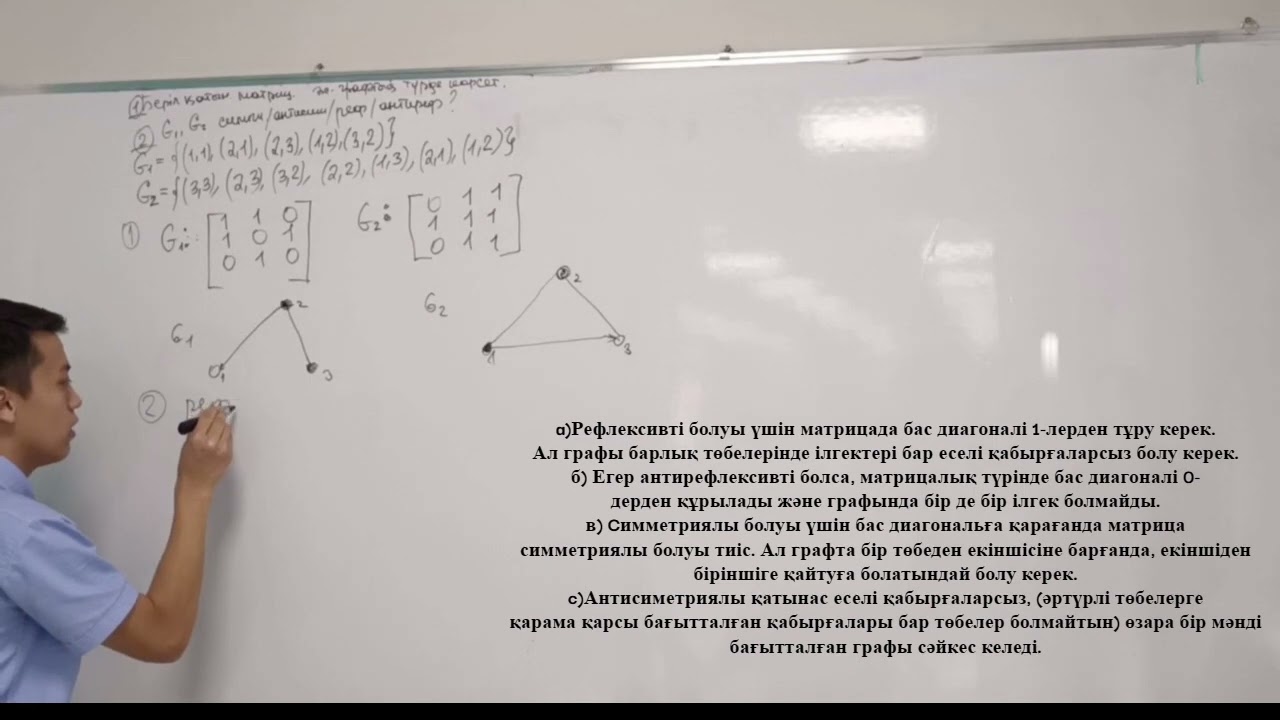 ① Беріл қатын матриц. эл. графтық түрде көрсет.
② G₁, G₂ симм/антисим/реф/антиреф?
G₁ = {(1,1), (2,1), (2,3), (1,2), (3,2)}
G₂ = {(3,3), (2,3), (3,2), (2,2), (1,3), (2,1), (1,2)}
① G₁: [1 1 0 G₂: [0 1 1
1 0 1 1 1 1
0 1 0] 0 1 1]
G₁ 1 2 3
G₂ 1 2 3
② реф
а)Рефлексивті болуы үшін матрицада бас диагоналі 1-лерден тұру керек.
Ал графы барлық төбелерінде ілгектері бар еселі қабырғаларсыз болу керек.
б) Егер антирефлексивті болса, матрицалық түрінде бас диагоналі 0-
дерден құрылады және графында бір де бір ілгек болмайды.
в) Симметриялы болуы үшін бас диагональға қарағанда матрица
симметриялы болуы тиіс. Ал графта бір төбеден екіншісіне барғанда, екіншіден
біріншіге қайтуға болатындай болу керек.
с)Антисиметриялы қатынас еселі қабырғаларсыз, (әртүрлі төбелерге
қарама қарсы бағытталған қабырғалары бар төбелер болмайтын) өзара бір мәнді
бағытталған графы сәйкес келеді.